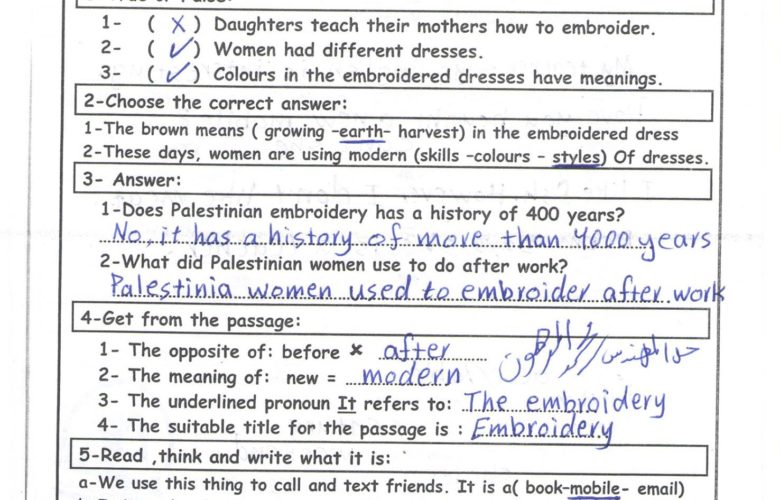 1- ( X ) Daughters teach their mothers how to embroider.
2- ( ✓ ) Women had different dresses.
3- ( ✓ ) Colours in the embroidered dresses have meanings.
2-Choose the correct answer:
1-The brown means ( growing -earth- harvest) in the embroidered dress
2-These days, women are using modern (skills -colours - styles) Of dresses.
3- Answer:
1-Does Palestinian embroidery has a history of 400 years?
No, it has a history of more than 4000 years
2-What did Palestinian women use to do after work?
Palestinia women used to embroider after work
4-Get from the passage:
1- The opposite of: before × after
2- The meaning of: new = modern
3- The underlined pronoun It refers to: The embroidery
4- The suitable title for the passage is : Embroidery
5-Read ,think and write what it is:
a-We use this thing to call and text friends. It is a( book-mobile- email)